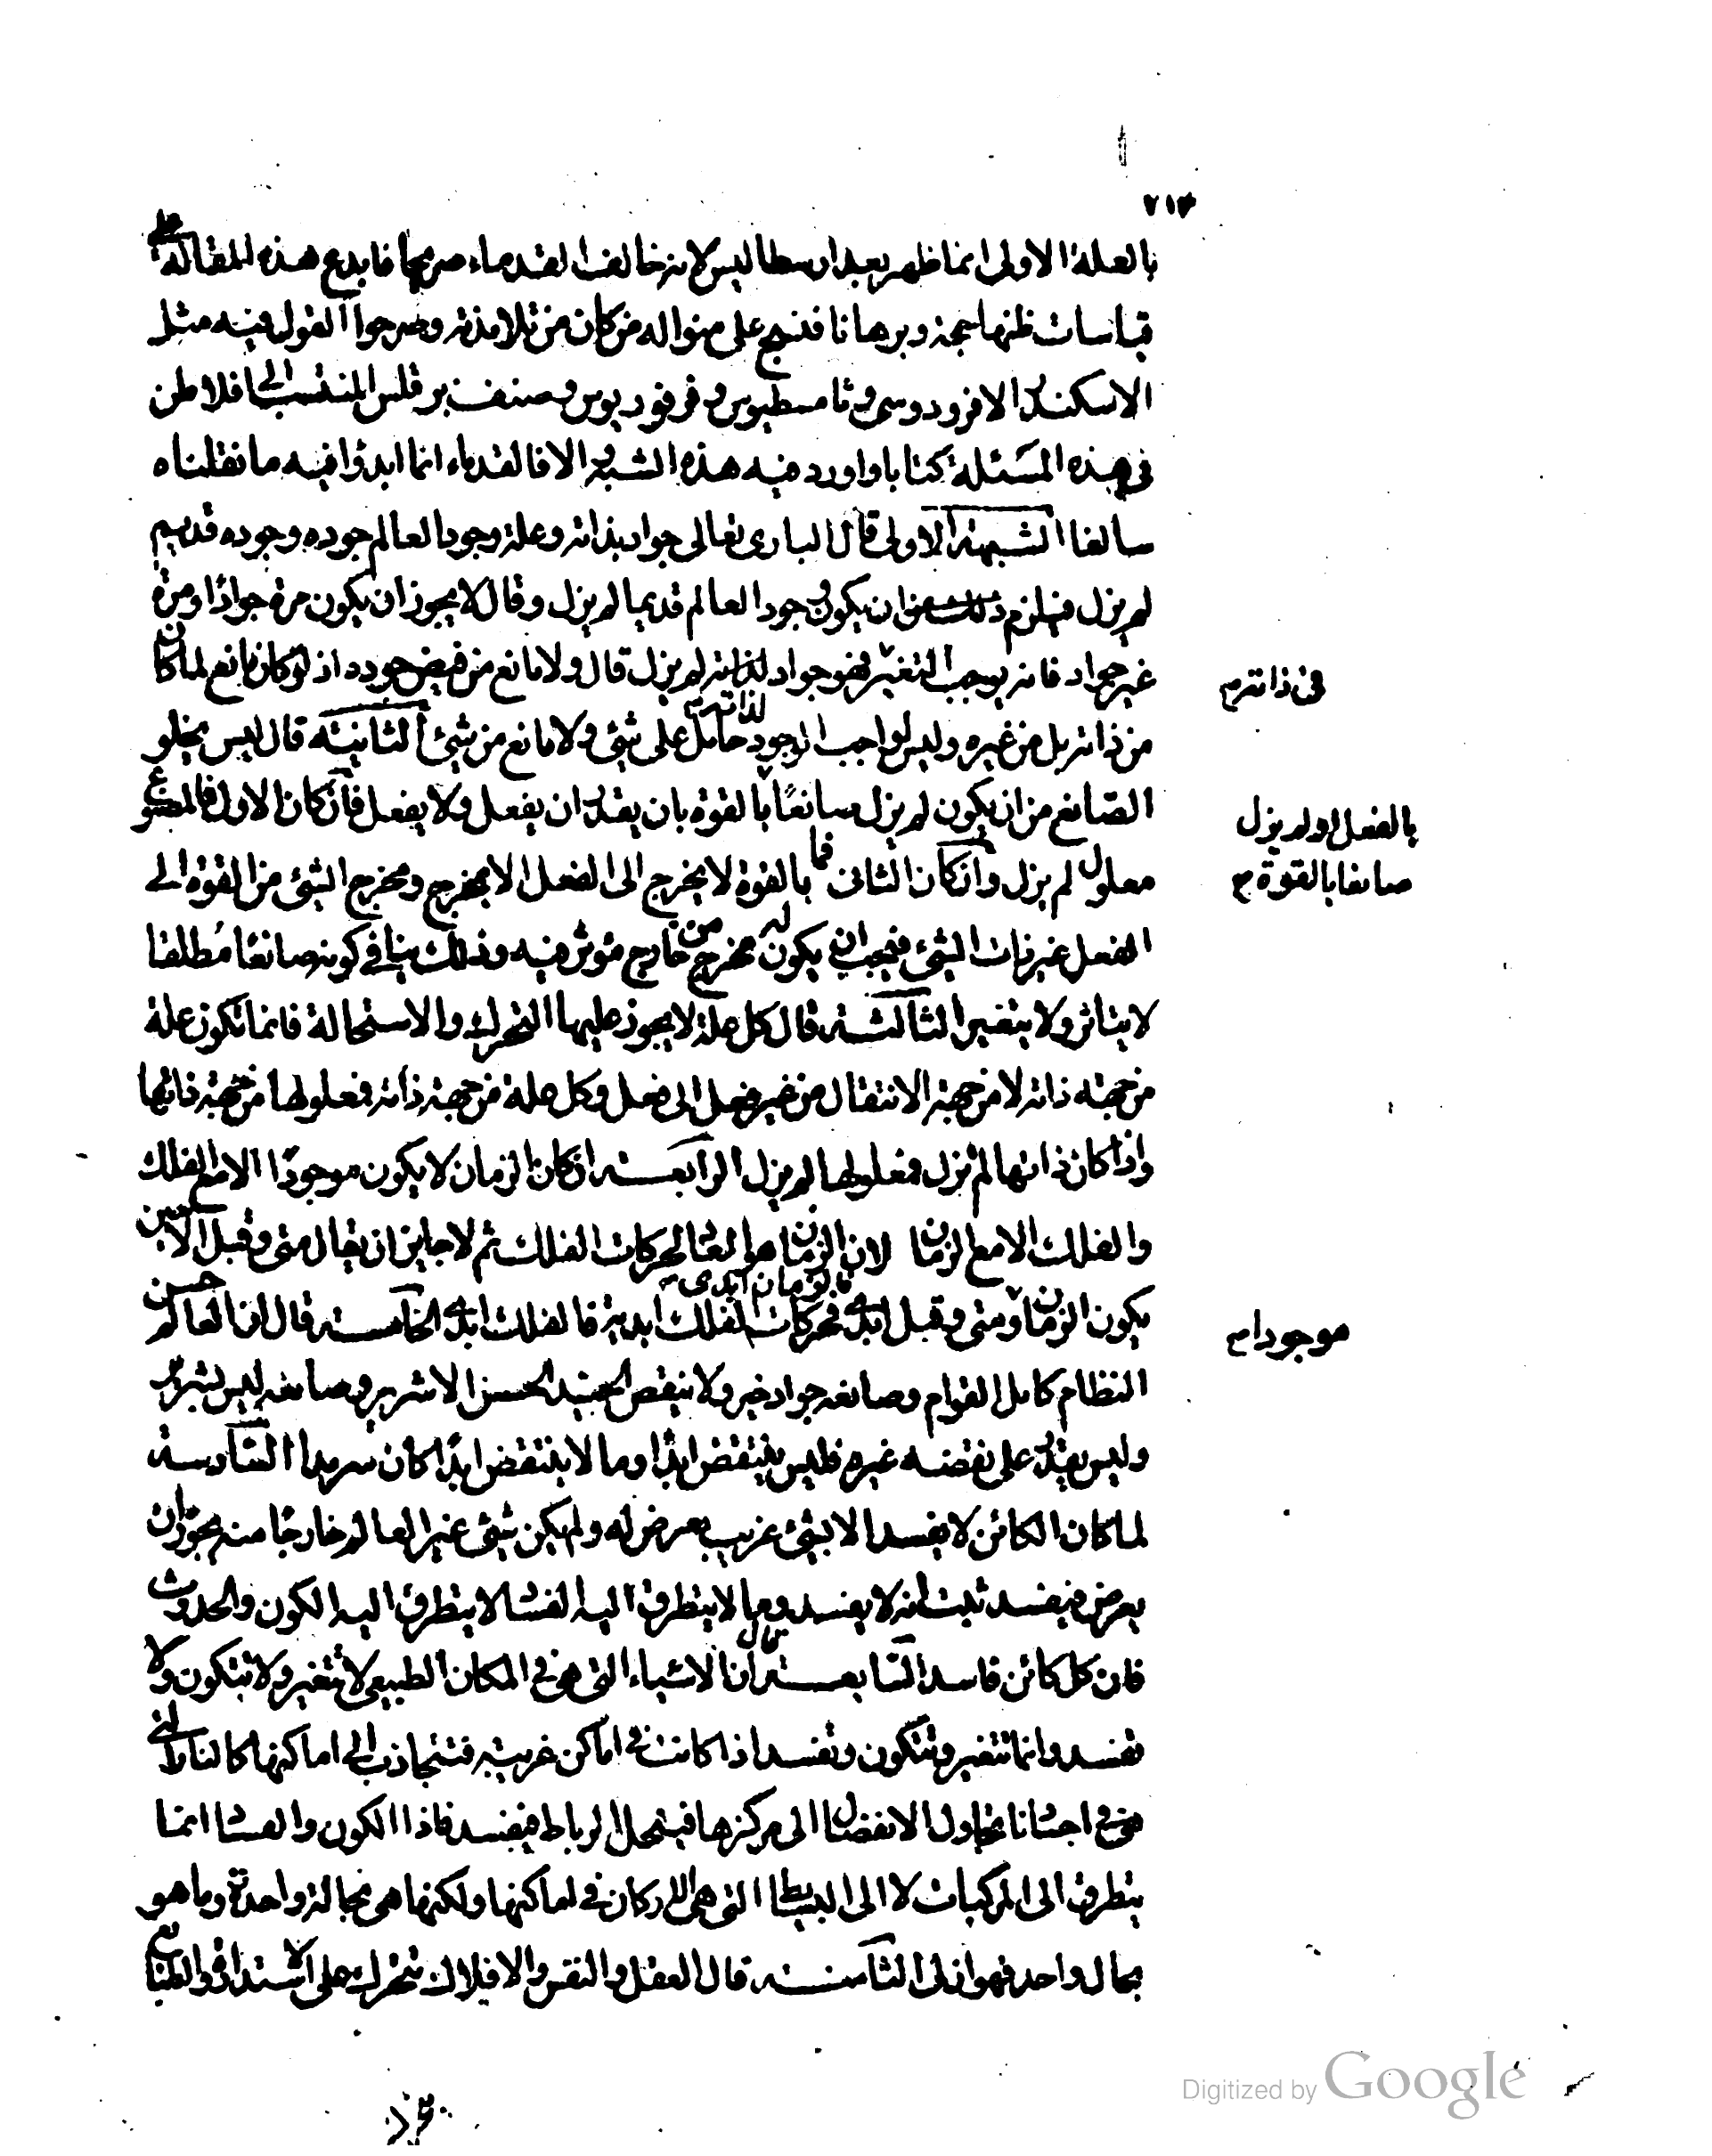 ٢١٣
بالعلة الاولى انما ظهر بعد ارسطاطاليس لانه خالف القدماء صريحا فابدع هذه المقالة على
قياسات ظنها حجة وبرهانا فنسج على منواله من كان من تلامذته وصرحوا القول فيه مثل
الاسكندر الافروديسى وثامسطيوس وفرفوريوس وصنف برقلس المنتسب الى افلاطن
فى هذه المسئلة كتابا واورد فيه هذه الشبه الا فالقدماء انما ابدوا فيه ما نقلناه
سالفا الشبهة الاولى قال البارى تعالى جواد بذاته وعلة وجود العالم جوده وجوده قديم
لم يزل فيلزم ان يكون وجود العالم قديما لم يزل وقال لا يجوز ان يكون مرة جوادا ومرة
غير جواد فانه يوجب التغير فهو جواد لذاته لم يزل قال ولا مانع من فيض جوده اذ لو كان مانع لما كان
فى ذاته م
من ذاته بل من غيره وليس لواجب الوجود لذاته م حامل على شئ ولا مانع من شئ الثانية قال ليس يخلو
الصانع من ان يكون لم يزل صانعا بالقوة بان يقدر ان يفعل ولا يفعل فان كان الاول فالمصنوع
بالفعل او لم يزل
معلول لم يزل وان كان الثانى فما بالقوة لا يخرج الى الفعل الا بمخرج ومخرج الشئ من القوة الى
صانعا بالقوة م
الفعل غير ذات الشئ فيجب ان يكون له مخرج من خارج مؤثر فيه وذلك ينافى كونه صانعا مطلقا
لا يتاثر ولا يتغير الثالثة قال كل علة لا يجوز عليها التحرك والاستحالة فانما تكون علة
من جهة ذاته لا من جهة الانتقال من غير فعل الى فعل وكل علة من جهة ذاته فمعلولها من جهة ذاتها
واذا كان ذاتها لم تزل فمعلولها لم يزل الرابعة ان كان الزمان لا يكون موجودا الا مع الفلك
والفلك الا مع الزمان لان الزمان هو العاد لحركات الفلك ثم لا جايز ان يقال متى وقبل الا حين
يكون الزمان ومتى وقبل ابدى فالزمان ابدى فحركات الفلك ابدية فالفلك ابدى الخامسة قال ان العالم حسن
موجودا م
النظام كامل القوام وصانعه جواد خير ولا ينقض الجيد الحسن الا شرير وصانعه ليس بشرير
وليس يقدر على نقضه غيره فليس ينتقض ابدا وما لا ينتقض ابدا كان سرمدا السادسة
لما كان الكائن لا يفسد الا بشئ غريب يعرض له ولم يكن شئ غير العالم خارجا منه يجوز ان
يعرض فيفسد ثبت انه لا يفسد وما لا يتطرق اليه الفساد لا يتطرق اليه الكون والحدوث
فان كل كائن فاسد السابعة قال ان الاشياء التى هى فى المكان الطبيعى لا تتغير ولا تتكون ولا
تفسد وانما تتغير وتتكون وتفسد اذا كانت فى اماكن غريبة فتتجاذب الى اماكنها كالنار التى
هى فى اجسادنا تحاول الانفصال الى مركزها فينحل الرباط فيفسد فاذا الكون والفساد انما
يتطرق الى المركبات لا الى البسايط التى هى الاركان فى اماكنها ولكنها هى بحالة واحدة وما هو
بحال واحد فهو ازلى الثامنة قال العقل والنفس والافلاك تتحرك على الاستدارة والطبايع
Digitized by Google